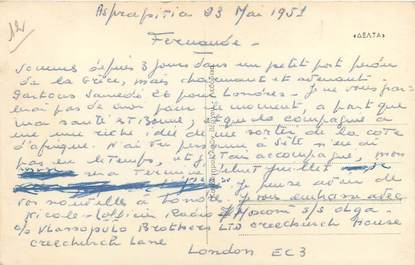 Aspropitia 23 Mai 1951
Fernande -
ΔΕΛΤΑ
sommes depuis 3 jours dans un petit port perdu
de la Grèce, mais charmant et avenant.
Partons Samedi 26 pour Londres. Je ne vous
pas de mon pour le moment, à part que
ma santé est Bonne, et que la compagnie a
une riche idée de me sortir de la cote
d'afrique. N'ai vu personne à Sète n'en ai
pas eu le temps, et j'étais accompagné, mon
sera début juillet
Je pense avoir de
vos nouvelles à Londres, Je vous embrasse avec
Nicole. officier Radio Mosconi S/S Olga.
c/o Vlassopulo Brothers LTD Creechurch House
Creechurch Lane
London EC3